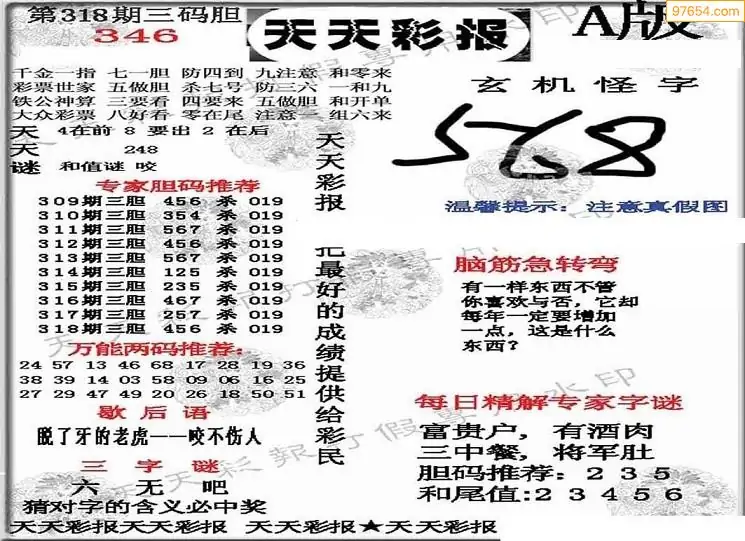 第318期三码胆
346
天天彩报
A版
97654.com
千金一指 七一胆 防四到 九注意 和零来
彩票世家 五做胆 杀七号 防三六 一和九
铁公神算 三要看 四要来 五做胆 和开单
大众彩票 八好看 零在尾 注意一 组六来
天天谜
4在前 8要出 2在后
248
和值谜 咬
专家胆码推荐
309期三胆 456 杀 019
310期三胆 354 杀 019
311期三胆 567 杀 019
312期三胆 456 杀 019
313期三胆 567 杀 019
314期三胆 125 杀 019
315期三胆 235 杀 019
316期三胆 467 杀 019
317期三胆 257 杀 019
318期三胆 456 杀 019
万能两码推荐:
24 57 13 46 68 17 28 19 36
38 39 14 03 58 09 06 16 25
27 29 47 49 20 26 18 50 51
歇后语
脱了牙的老虎——咬不伤人
三字谜
六 无 吧
猜对字的含义必中奖
天天彩报
把最好的成绩提供给彩民
玄机怪字
温馨提示：注意真假图
脑筋急转弯
有一样东西不管
你喜欢与否，它却
每年一定要增加
一点，这是什么
东西？
每日精解专家字谜
富贵户，有酒肉
三中餐，将军肚
胆码推荐：235
和尾值:23456
天天彩报天天彩报 天天彩报★天天彩报